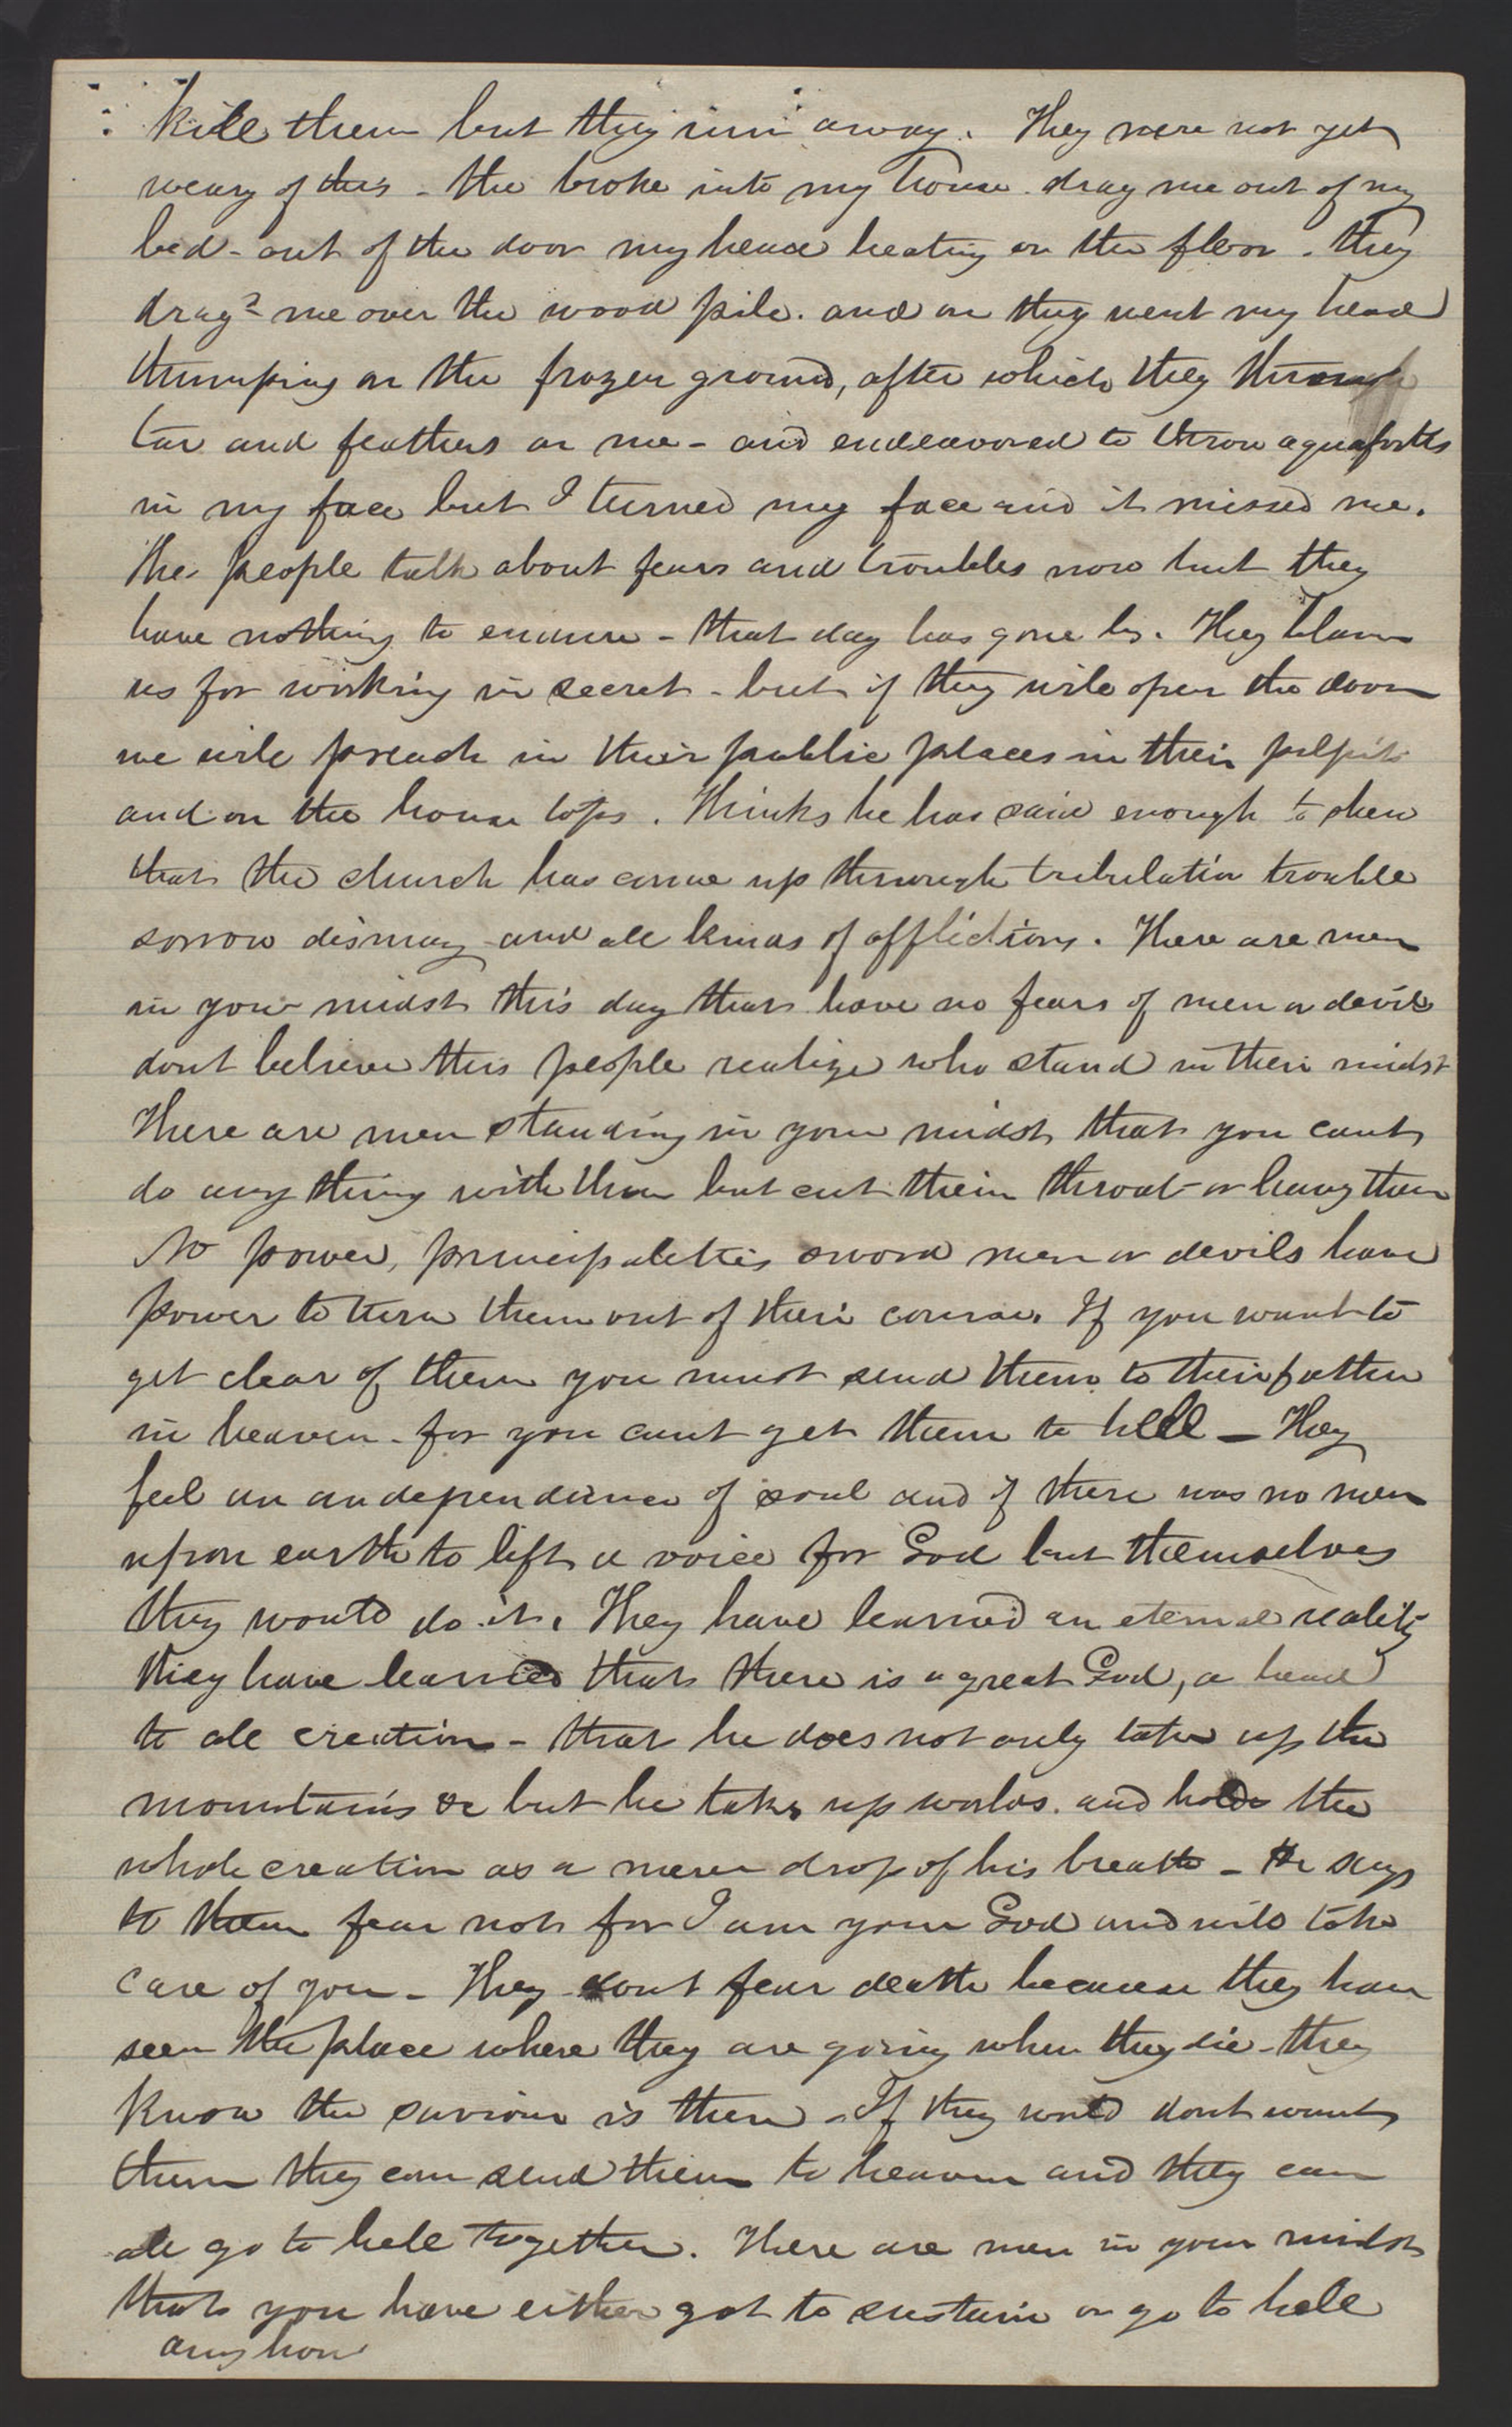 kill them but they run away. They were not yet
weary of this - the broke into my house. drag me out of my
bed - out of the door my head beating on the floor. they
drag.d me over the wood pile. and on they went my head
thumping on the frozen ground, after which they through
tar and feathers on me - and endeavored to throw aquafortis
in my face but I turned my face and it missed me.
The people talk about fears and troubles now but they
have nothing to endure - that day has gone by. They blame
us for working in secret - but if they will open the doors
we will preach in their public places in their pulpits
and on the house tops. Thinks he has said enough to shew
that the church has come up through tribulation trouble
sorrow dismay and all kinds of afflictions. There are men
in your midst this day that have no fears of men or devils
dont believe this people realize who stand in their midst
There are men standing in your midst that you cant
do any thing with them but cut their throat or hang them
No power, principalities sword men or devils have
power to turn them out of their course. If you want to
get clear of them you must send them to their father
in heaven - for you cant get them to hell - They
feel an andependence of soul and if there was no men
upon earth to lift a voice for God but themselves
they would do it. They have learned an eternal reality
they have learned that there is a great God, a head
to all creation - that he does not only take up the
mountains &c but he takes up worlds. and holds the
whole creation as a mere drop of his breath - He says
to them fear not for I am your God and will take
care of you - They dont fear death because they have
seen the place where they are going when they die - they
know the saviour is there - If they world dont want
them they can send them to heaven and they can
all go to hell together. There are men in your midst
that you have either got to sustain or go to hell
any how